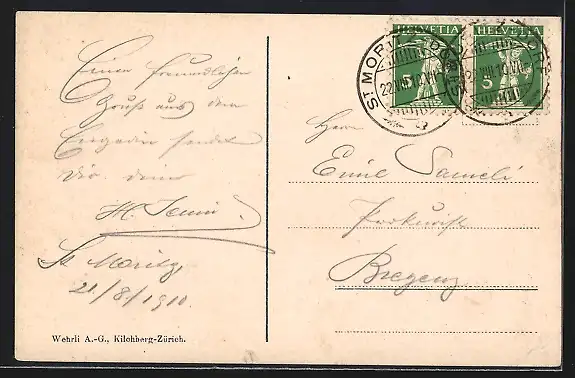 Einen freundlichen
Gruss aus dem
Engadin sendet
Dir dein
St. Moritz,
21./8./1910.
Wehrli A.-G., Kilchberg-Zürich.
HELVETIA
5
HELVETIA
5
ST MORITZ
22.VIII.10.VII
Herrn
Emil Sameli
Prokurist
Bregenz